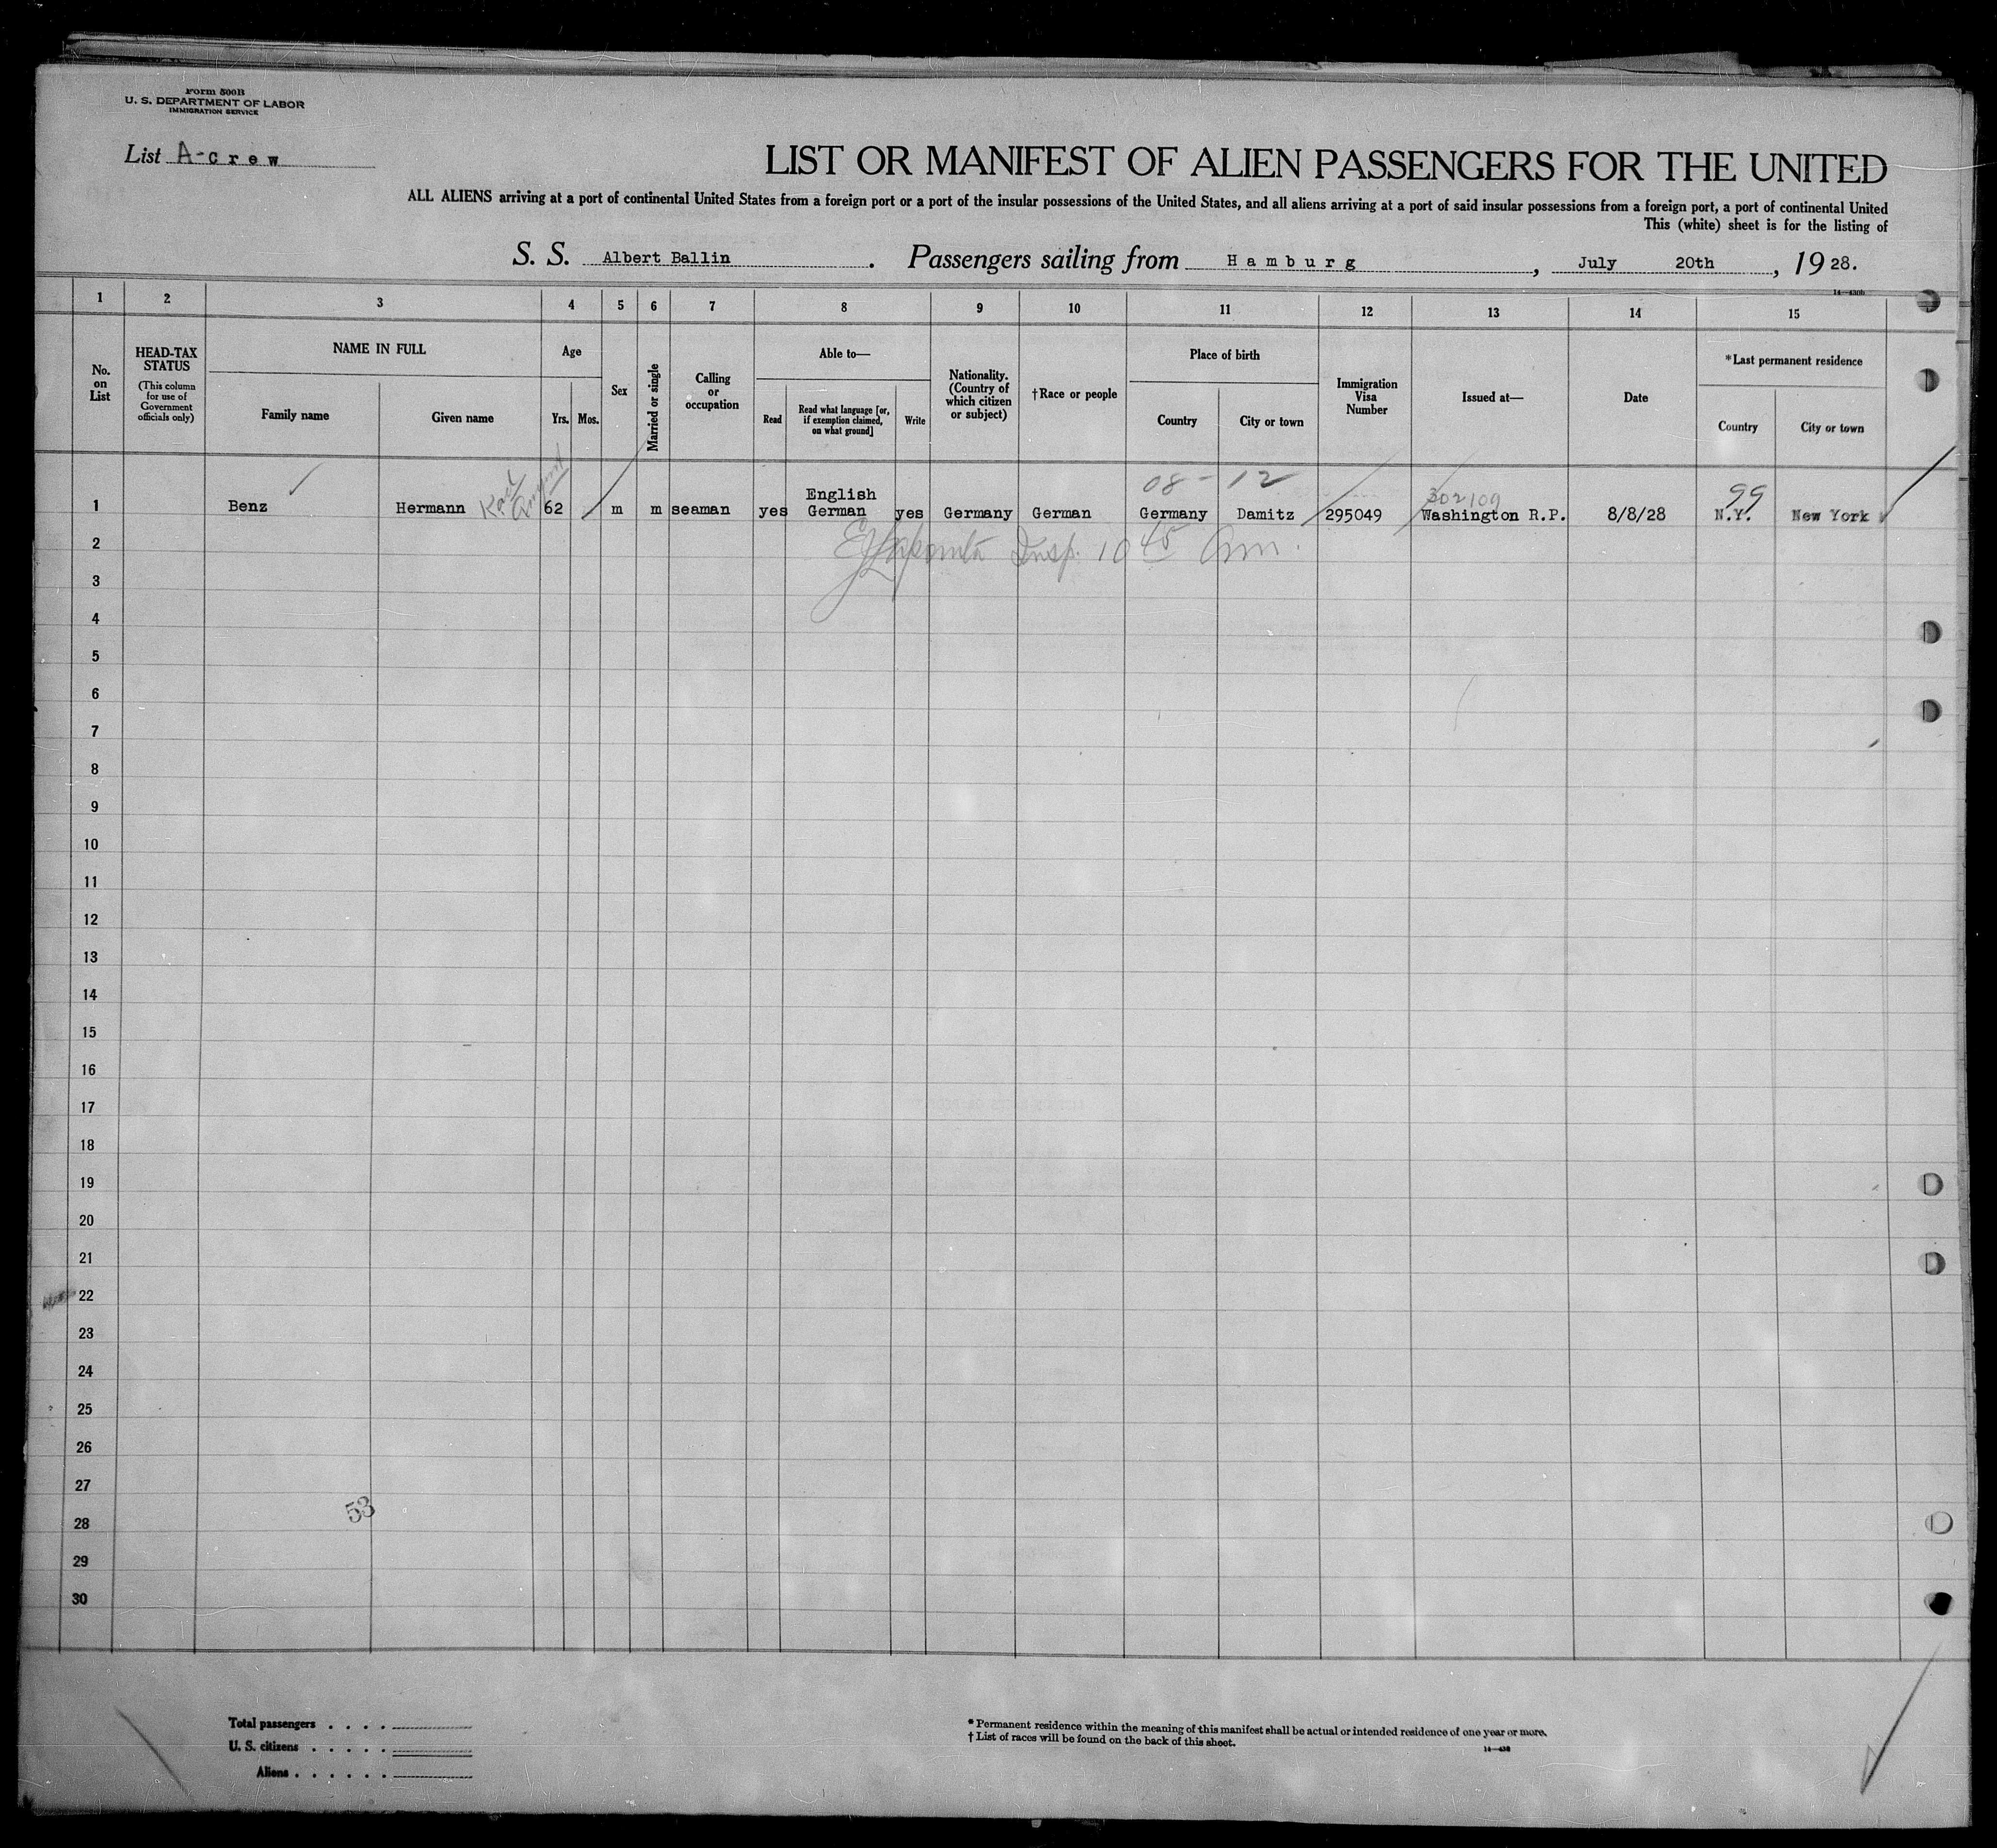 Form 500B
U. S. DEPARTMENT OF LABOR
IMMIGRATION SERVICE
List A-crew
LIST OR MANIFEST OF ALIEN PASSENGERS FOR THE UNITED
ALL ALIENS arriving at a port of continental United States from a foreign port or a port of the insular possessions of the United States, and all aliens arriving at a port of said insular possessions from a foreign port, a port of continental United
This (white) sheet is for the listing of
S. S. Albert Ballin . Passengers sailing from Hamburg , July 20th , 19 28.
1 2 3 4 5 6 7 8 9 10 11 12 13 14 15
No. on List
HEAD-TAX STATUS
(This column for use of Government officials only)
NAME IN FULL
Family name
Given name
Age
Yrs. Mos.
Sex
Married or single
Calling or occupation
Able to—
Read
Read what language [or, if exemption claimed, on what ground]
Write
Nationality. (Country of which citizen or subject)
†Race or people
Place of birth
Country
City or town
Immigration Visa Number
Issued at—
Date
*Last permanent residence
Country
City or town
08-12
302109
99
English
1 Benz Hermann Karl 62 m m seaman yes German yes Germany German Germany Damitz 295049 Washington R.P. 8/8/28 N.Y. New York
Insp. 10 45 Am.
2
3
4
5
6
7
8
9
10
11
12
13
14
15
16
17
18
19
20
21
22
23
24
25
26
27
53
28
29
30
Total passengers . . . .
U. S. citizens . . . . .
Aliens . . . . . .
* Permanent residence within the meaning of this manifest shall be actual or intended residence of one year or more.
† List of races will be found on the back of this sheet.